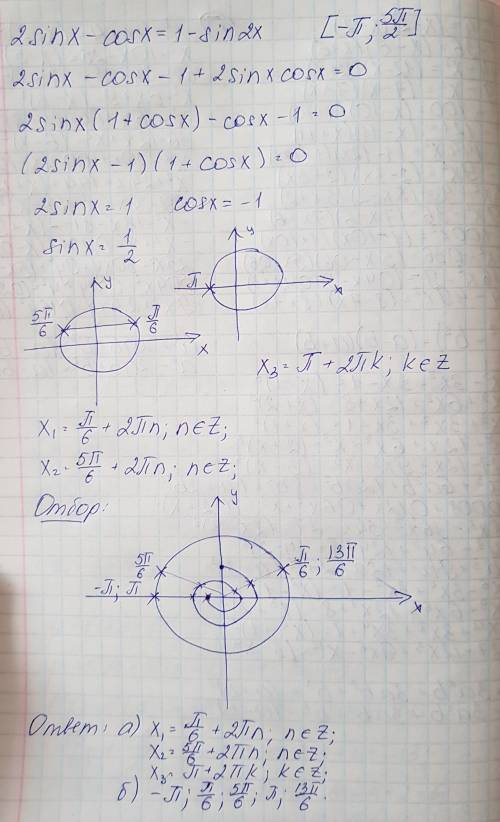 2sinx - cosx = 1 - sin2x [-π; 5π/2]
2sinx - cosx - 1 + 2sinxcosx = 0
2sinx(1+cosx) - cosx - 1 = 0
(2sinx - 1)(1+cosx) = 0
2sinx = 1 cosx = -1
sinx = 1/2
y
π
x
y
5π/6 π/6
x
x₃ = π + 2πk; k∈Z
x₁ = π/6 + 2πn; n∈Z;
x₂ = 5π/6 + 2πn; n∈Z;
Отбор:
y
5π/6 π/6; 13π/6
-π; π
x
Ответ: а) x₁ = π/6 + 2πn; n∈Z;
x₂ = 5π/6 + 2πn; n∈Z;
x₃ = π + 2πk; k∈Z;
б) -π; π/6; 5π/6; π; 13π/6.